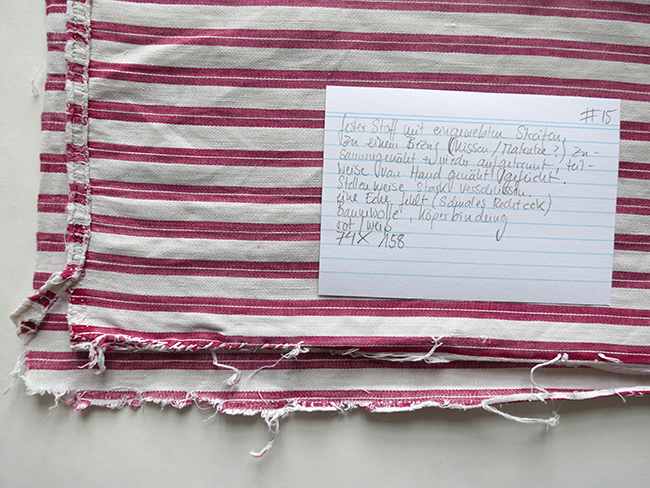 #15
fester Stoff mit eingewebten Streifen
zu einem Bezug (Kissen/Matratze?) zu-
sammengenäht + wieder aufgetrennt, teil-
weise von Hand genäht, geflickt.
Stellenweise stark verschlissen.
eine Ecke fehlt (schmales Rechteck)
Baumwolle, Köperbindung
rot/weiß
74 x 158